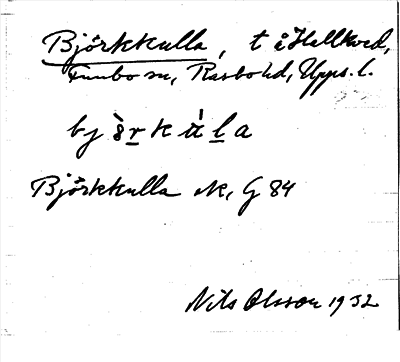 Björkkulla, t å Hallkved,
Funbo sn, Rasbo hd, Upps. l.
björ̲kùl̲a
Björkkulla Ak, G 84
Nils Olsson 1932